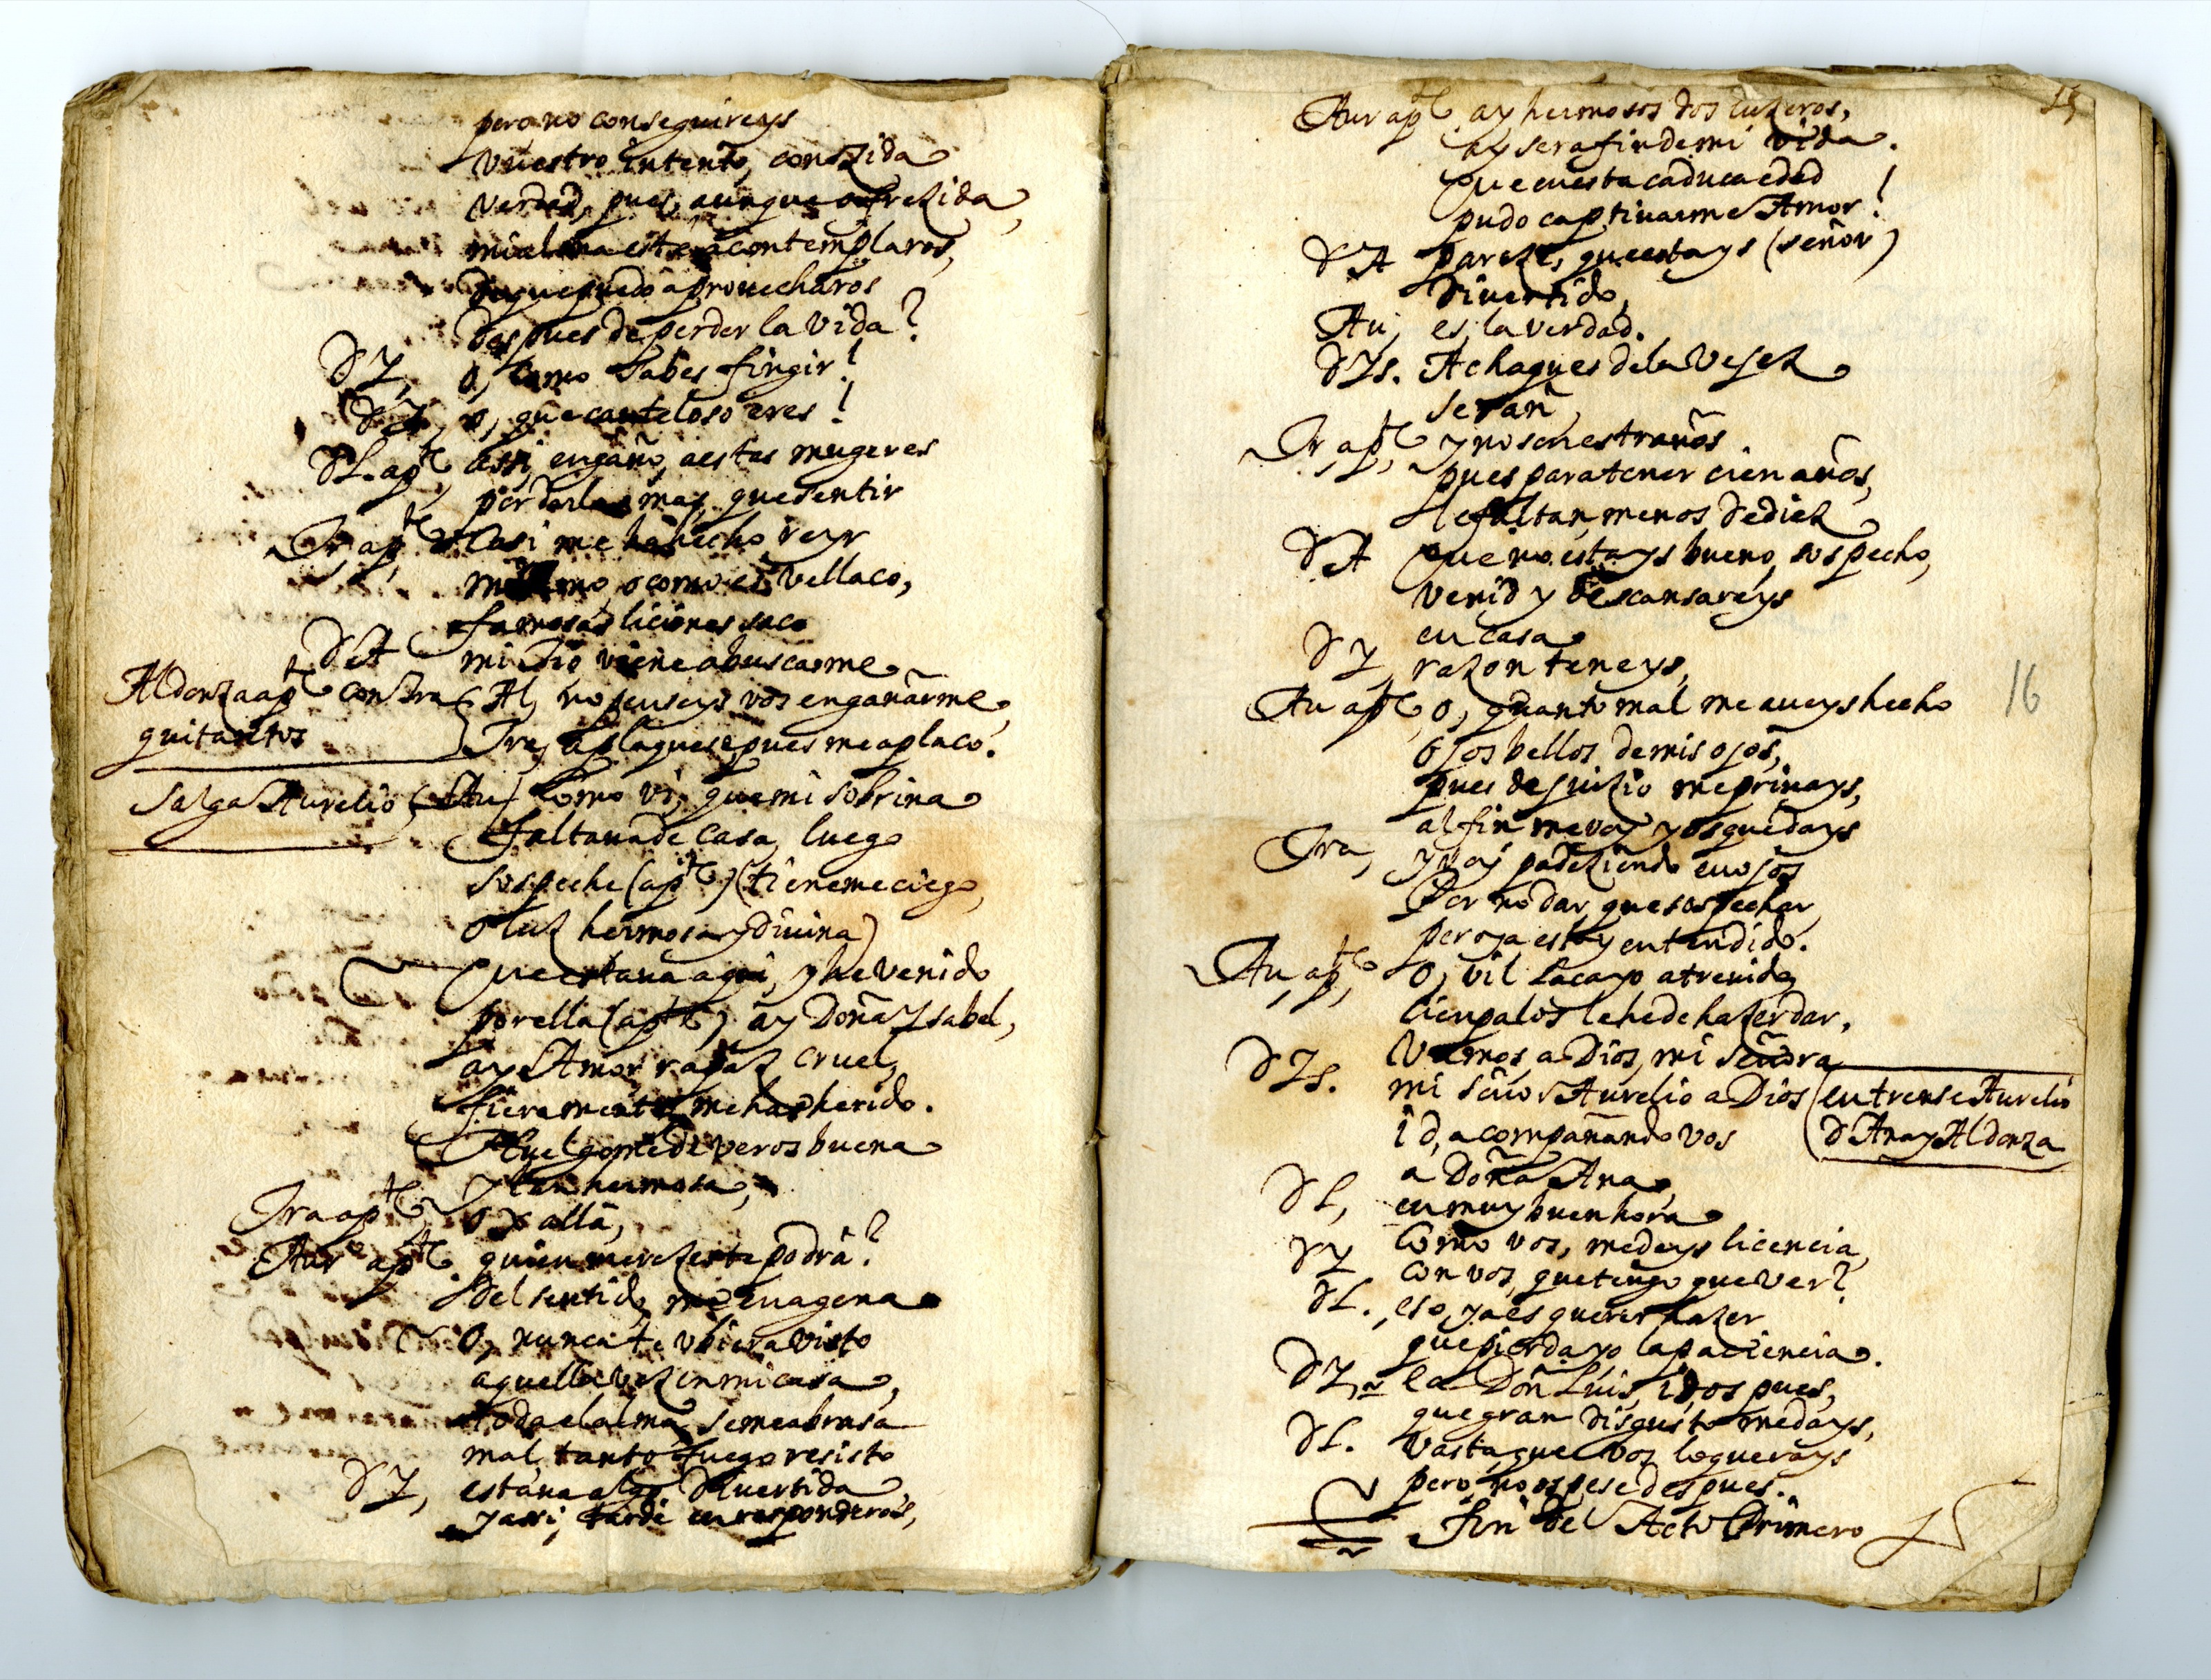 pero no conseguireys
vuestro intento, conozida
verdad, pues, aunque ofrezida
mi alma esté a contemplaros,
de que puedo aprouecharos
despues de perder la vida?
DY, o, como sabes fingir!
DA, o, que cauteloso eres!
DL. apte, assi, engaño, a estas mugeres
por darlas mas, que sentir
Tr apte Casi me ha hecho reyr
mi amo, o como es vellaco,
famosas liciones saco
DA mi Tio viene a buscarme
Aldonza apte contra
guitantos
Al, no penseys vos engañarme,
Tre, aplaquese, pues me aplaco.
Salga Aurelio Au, Como vi, que mi sobrina
faltaua de casa, luego
sospeche (apte) (tieneme ciego,
o luz hermosa y diuina)
Que estaua aqui, y he venido
por ella (apte) ay Doña Ysabel,
ay Amor rapaz cruel,
fieramente me has herido.
Huelgome de veros buena
y tan hermosa,
Tra apte, ox alla,
Aure apte. quien merezerte podrà?
del sentido me enagena
O, nunca te vbiera visto
aquella vez en mi casa,
toda el alma se me abrasa
mal, tanto fuego resisto
DY, estaua algo diuertida
y assi, tarde en responderos,
15
Aur apte ay hermosos dos luzeros,
ay serafin de mi vida.
Que en esta caduca edad
pudo captiuarme Amor!
DA pareze, que estays (señor)
diuertido,
Au, es, la verdad.
DYs. Achaques de la vejez
seran,
Tr apte, y no son estraños.
pues para tener cien años,
le faltan, menos de diez
DA Que no estays bueno, sospecho,
venid y descansareys
en casa
DY razon teneys,
Au apte, o, quanto mal me aueys hecho
16
ojos bellos de mis ojos,
pues de juizio me priuays,
al fin me voy y os quedays
Tra, y voy padeziendo enojos
Por no dar, que sospechar
pero ya estoy entendido.
Au, apte, O, vil lacayo atreuido
cien palos le he de hazer dar.
DYs. Vamos, a Dios, mi señora
mi señor Aurelio a Dios
entrense Aurelio
D Ana y Aldonza
id, acompañando vos
a Doña Ana,
DL, en muy buen hora
Como vos, me deys licencia,
DY con vos, que tengo que ver?
DL., eso, ya es querer hazer
que pierda yo la paciencia.
DY, ea Don Luis, idos pues,
que gran disgusto me days,
DL. vasta que vos lo querays
pero, no os pese despues.
Fin del Acto Primero